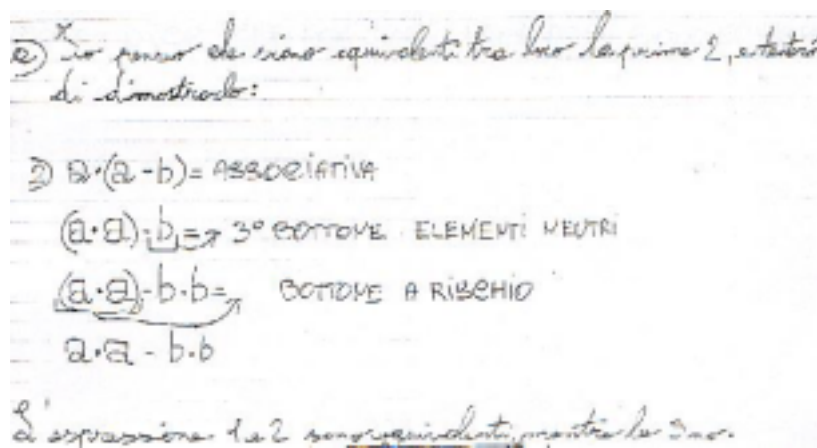 a) Io penso che siano equivalenti tra loro le prime 2, e tenterò
di dimostrarlo:
2) a·(a-b)= ASSOCIATIVA
(a·a)-b= → 3° BOTTONE ELEMENTI NEUTRI
(a·a)-b·b= BOTTONE A RISCHIO
a·a - b·b
L'espressione 1 e 2 sono equivalenti, mentre la 3 no.